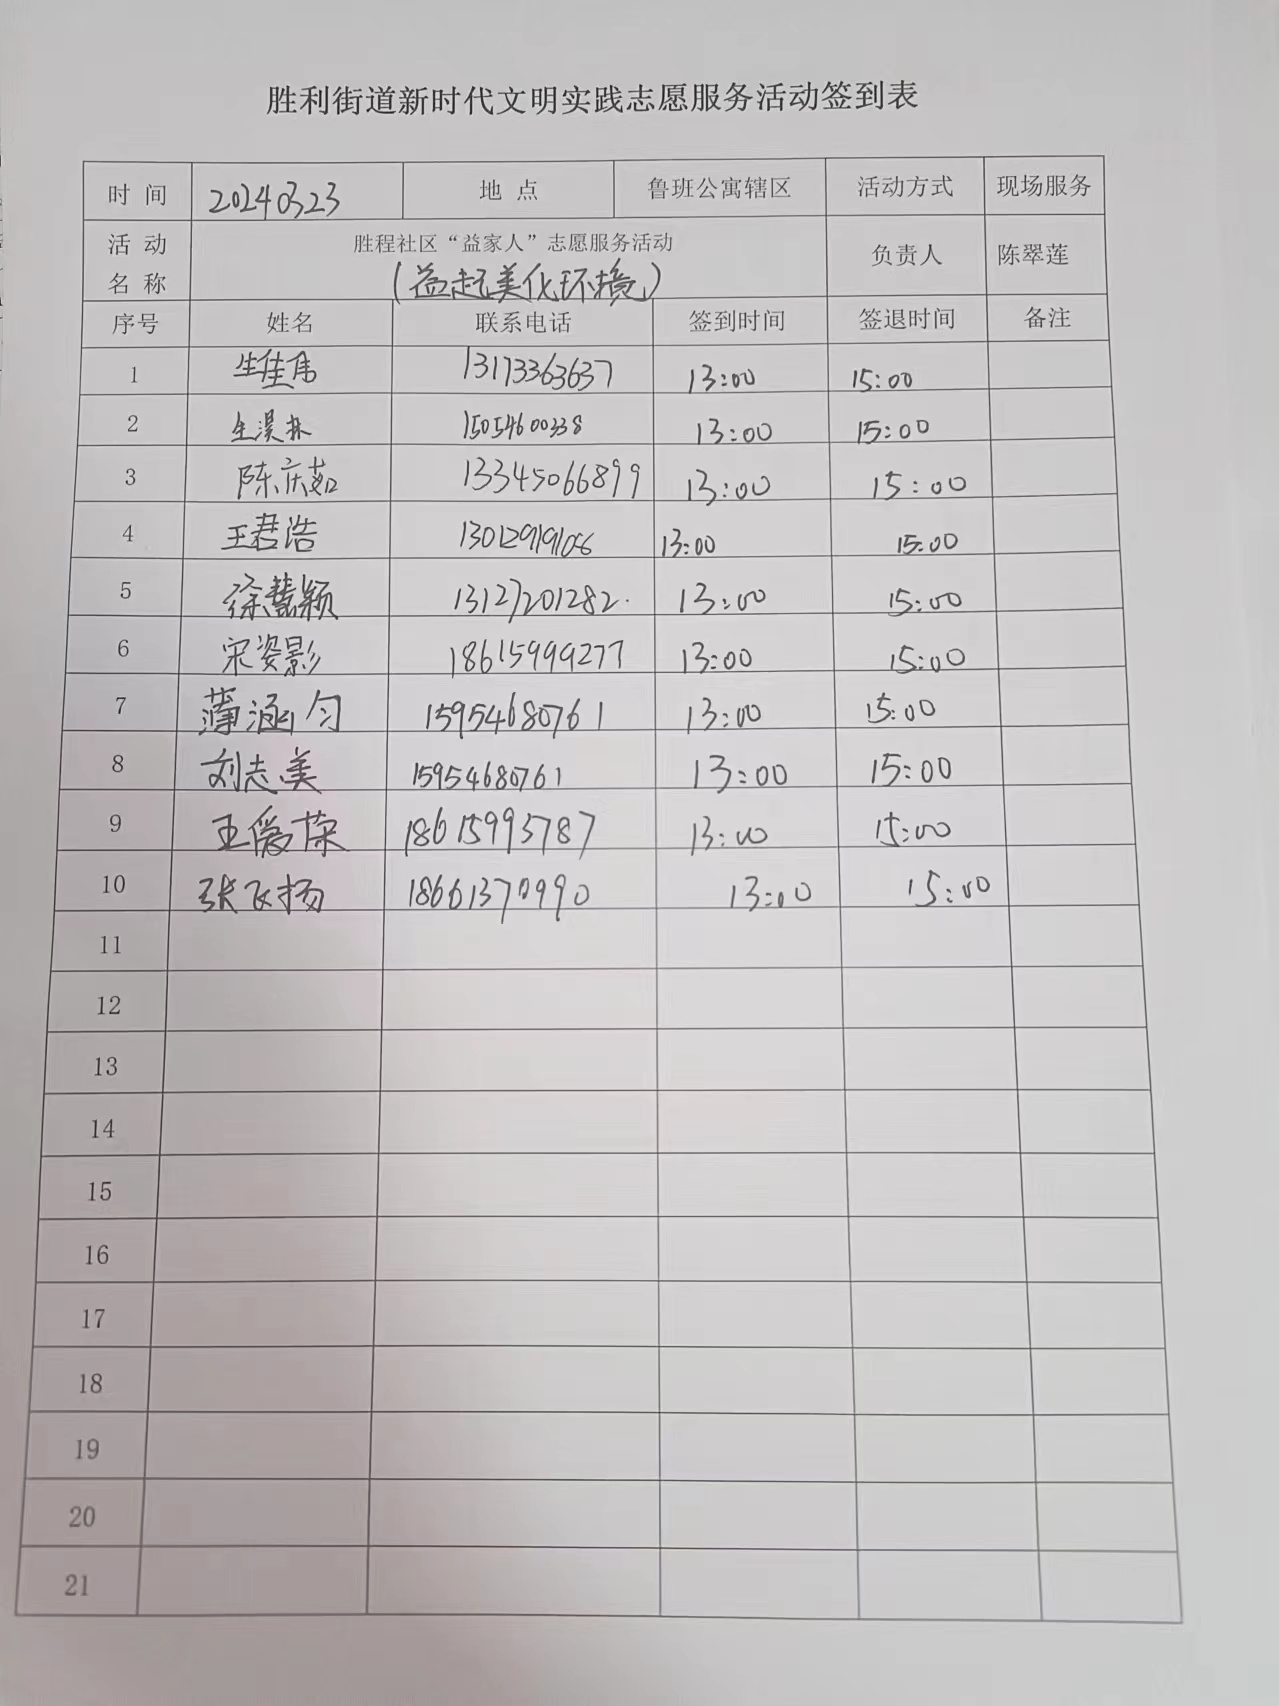 胜利街道新时代文明实践志愿服务活动签到表
时 间 20240323 地 点 鲁班公寓辖区 活动方式 现场服务
活 动 名 称 胜程社区“益家人”志愿服务活动 (益起美化环境) 负责人 陈翠莲
序号 姓名 联系电话 签到时间 签退时间 备注
1 生佳伟 13173363637 13:00 15:00
2 生淏林 15054600338 13:00 15:00
3 陈庆茹 13345066899 13:00 15:00
4 王君浩 13012919108 13:00 15:00
5 徐慧颖 13127201282 13:00 15:00
6 宋姿影 18615999277 13:00 15:00
7 蒲涵匀 15954680761 13:00 15:00
8 刘志美 15954680761 13:00 15:00
9 王爱荣 18615993787 13:00 15:00
10 张飞扬 18661370990 13:00 15:00
11
12
13
14
15
16
17
18
19
20
21